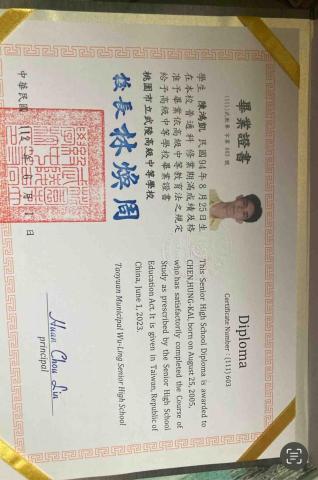 畢業證書
(111)武動畢字第 603 號
學生 陳鴻凱 民國 94 年 8 月 25 日生
在本校 普通科 修業期滿成績及格
准予畢業依高級中等教育法之規定
給予高級中等學校畢業證書
桃園市立武陵高級中等學校
校長 林煥周
中華民國
日
Diploma
Certificate Number : (111) 603
This Senior High School Diploma is awarded to
CHEN,HUNG-KAI, born on August 25, 2005,
who has satisfactorily completed the Course of
Study as prescribed by the Senior High School
Education Act. It is given in Taiwan, Republic of
China, June 1, 2023.
Taoyuan Municipal Wu-Ling Senior High School
Huan Chou Lin
principal